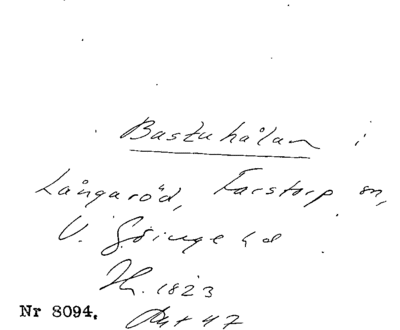 Bastuhålan i
Långaröd, Farstorp sn,
V. Göinge hd
1823
Nr 8094.
Akt 47